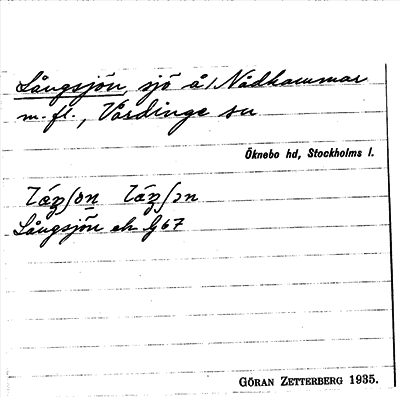 Långsjön, sjö å/ Nådhammar
m. fl., Vårdinge sn
Öknebo hd, Stockholms l.
Långsjön ek G 67
GÖRAN ZETTERBERG 1935.